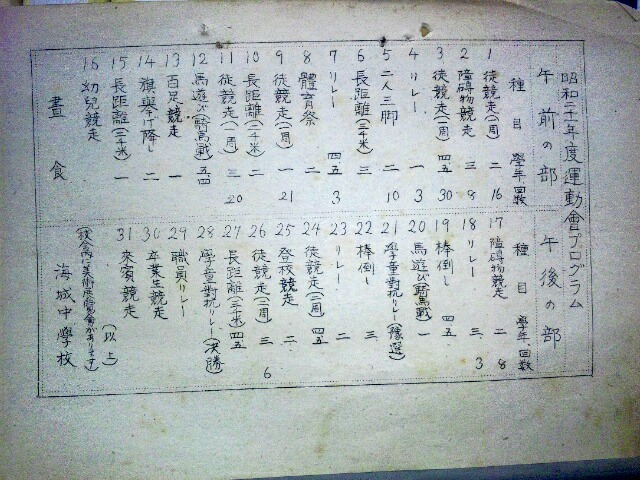 昭和二十一年度運動會プログラム
午前の部
種目 學年 回数
1 徒競走(一周) 二 16
2 障碍物競走 三 8
3 徒競走(一周) 四.五 30
4 リレー 一 3
5 二人三脚 二 10
6 長距離(三千米) 三
7 リレー 四.五 3
8 體育祭 二
9 徒競走(一周) 一 21
10 長距離(二千米) 二
11 徒競走(一周) 三 20
12 馬遊び(騎馬戰) 五.四
13 百足競走 一
14 旗 降し 二
15 長距離(二千米) 一
16 幼兒競走
晝食
午後の部
種目 學年、回数
17 障碍物競走 二 8
18 リレー 三 3
19 棒倒し 四.五
20 馬遊び(騎馬戰) 一
21 學童對抗リレー(豫選)
22 棒倒し 三
23 リレー 二
24 徒競走(二周) 四五
25 登校競走 二
26 徒競走(二周) 三 6
27 長距離(三千米) 四五
28 學童對抗リレー(決勝)
29 職員リレー
30 卒業生競走
31 來賓競走
(以上)
(校舎内に美術展覧會があります)
海城中學校